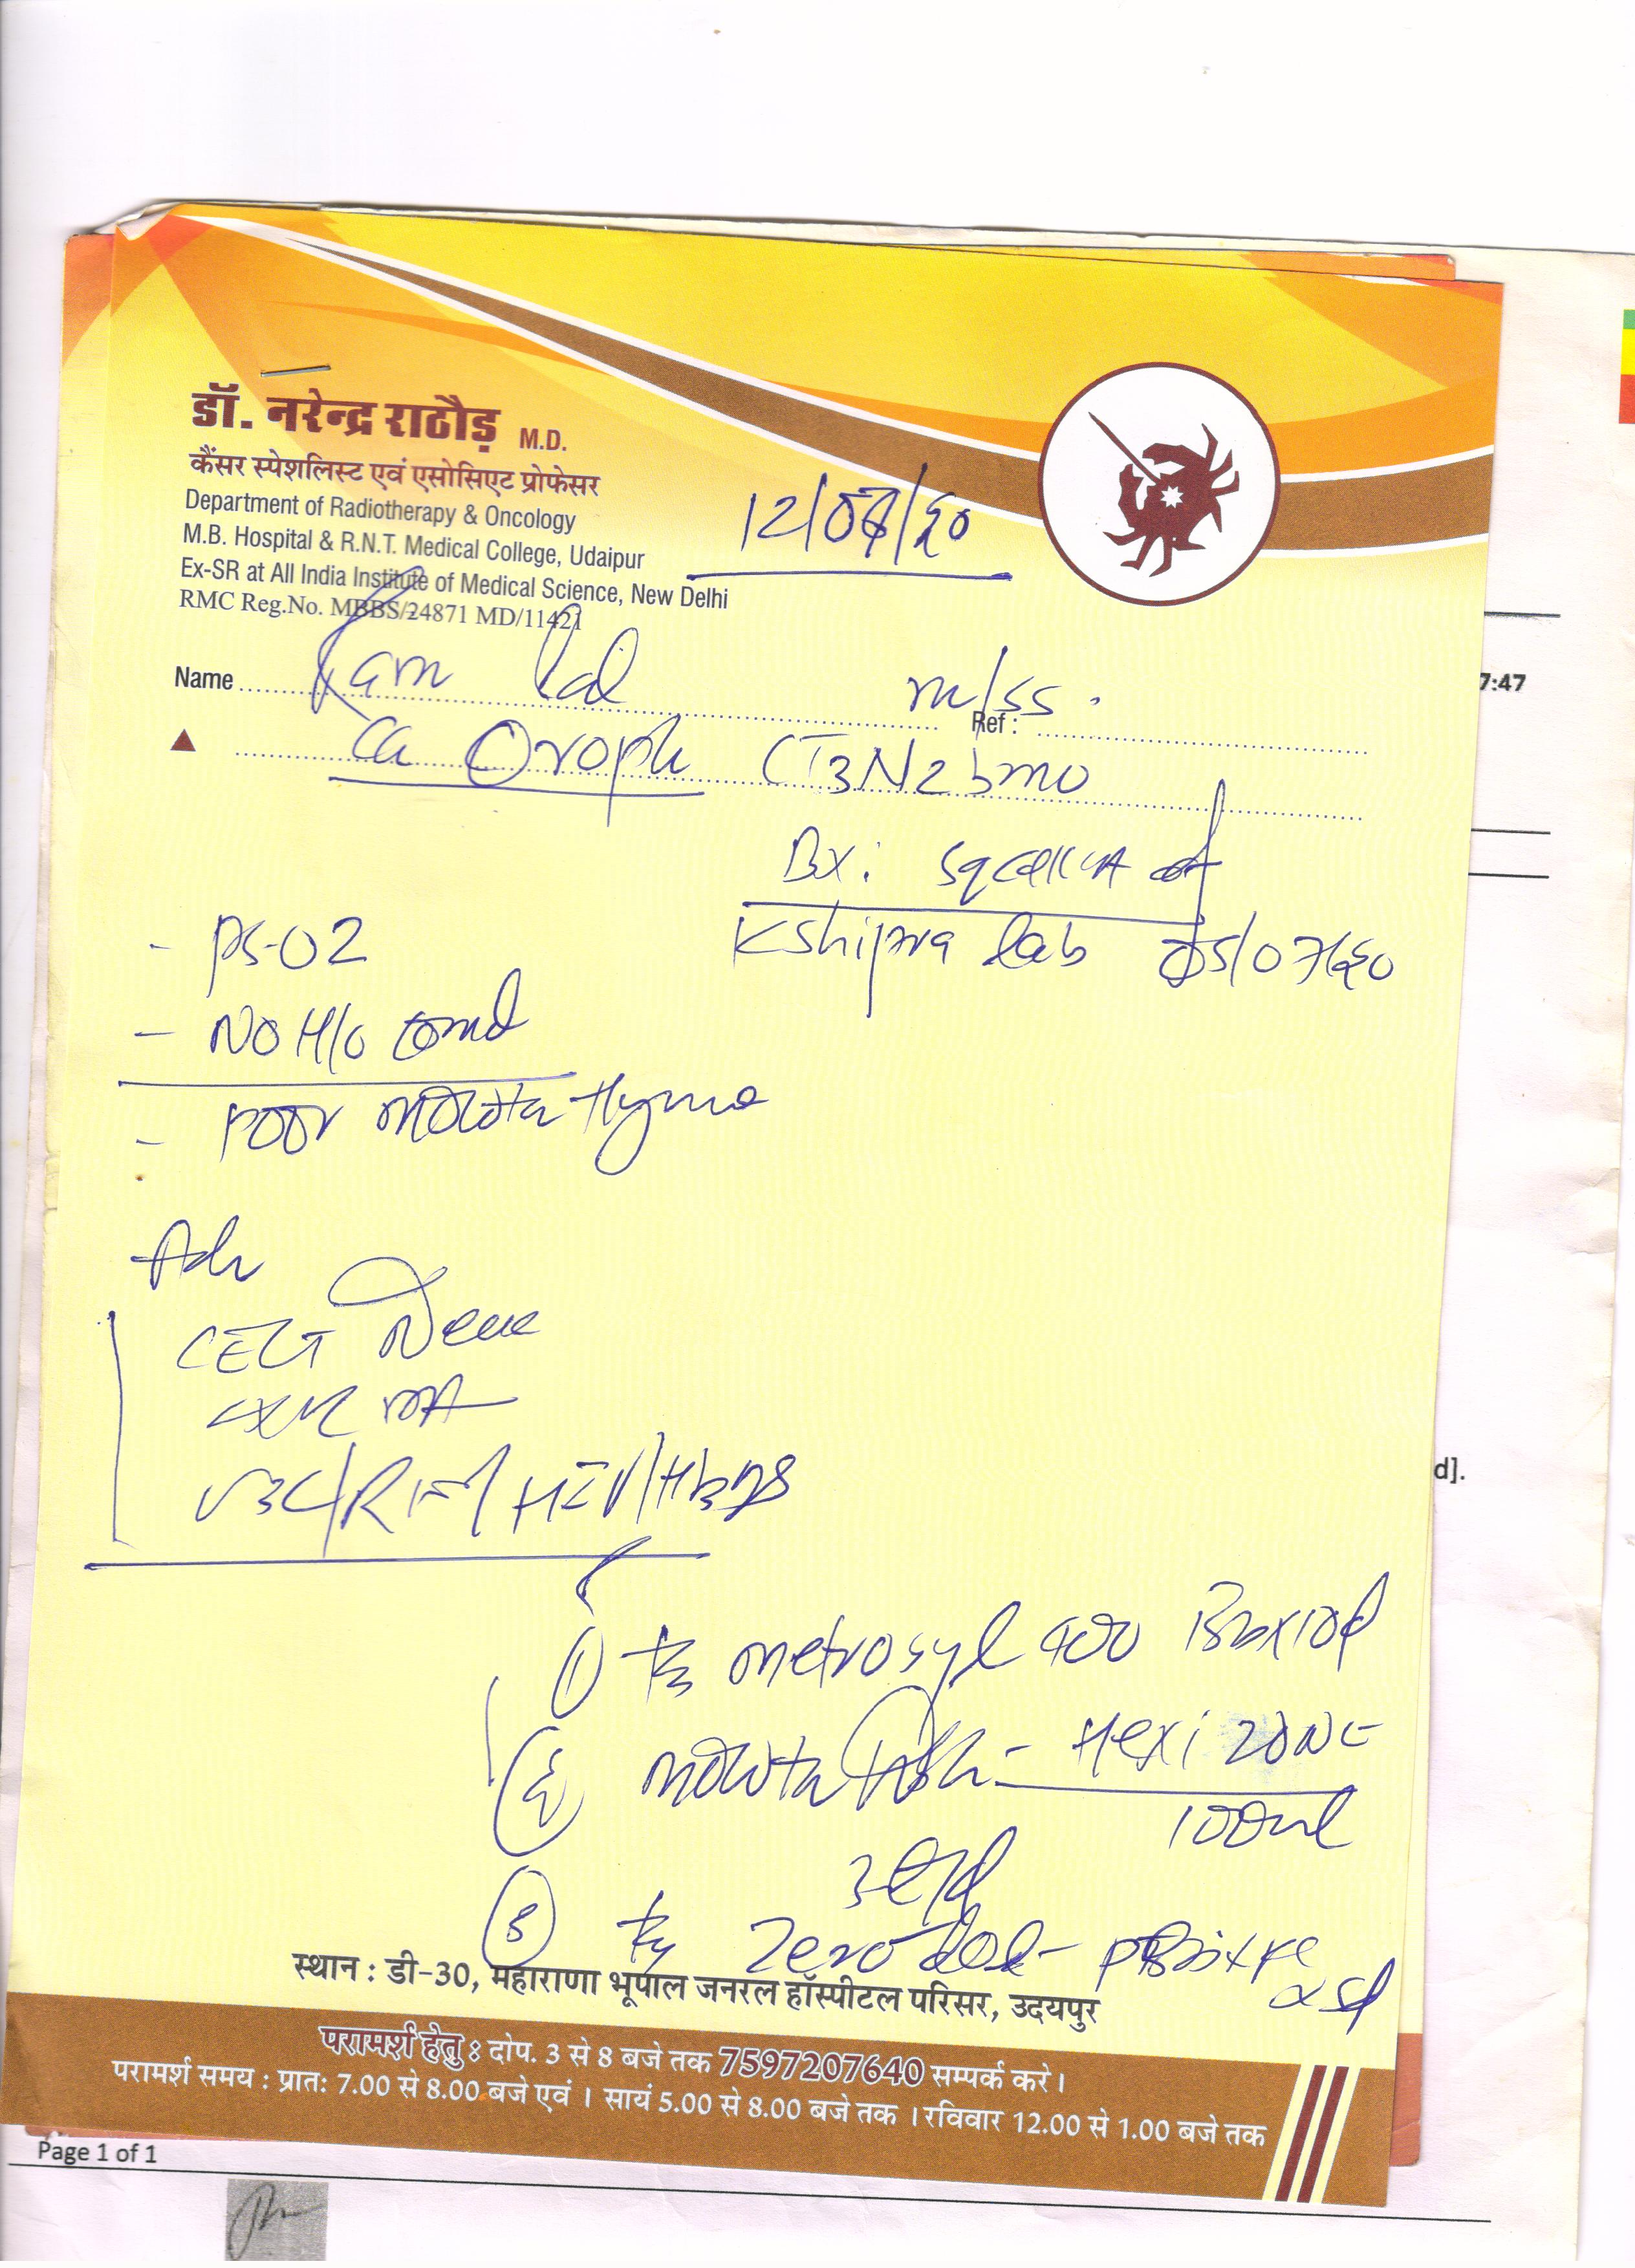 डॉ. नरेन्द्र राठौड़ M.D.
कैंसर स्पेशलिस्ट एवं एसोसिएट प्रोफेसर
Department of Radiotherapy & Oncology
M.B. Hospital & R.N.T. Medical College, Udaipur
Ex-SR at All India Institute of Medical Science, New Delhi
RMC Reg.No. MBBS/24871 MD/11421
Name Ram Lal m/55
Ref :
Ca Oroph CT3N2bM0
Bx: Sq cell CA
Kshipra lab 05/07/20
- PS-02
- NO H/o
- Poor mouth Hygine
Adv
CECT
CXR PA
HIV/
① metrosyl 400
② mouth - Hexi ZONE
100ml
③ Zerodol-P
7:47
d].
स्थान : डी-30, महाराणा भूपाल जनरल हॉस्पीटल परिसर, उदयपुर
परामर्श हेतु : दोप. 3 से 8 बजे तक 7597207640 सम्पर्क करे।
परामर्श समय : प्रातः 7.00 से 8.00 बजे एवं । सायं 5.00 से 8.00 बजे तक । रविवार 12.00 से 1.00 बजे तक
Page 1 of 1